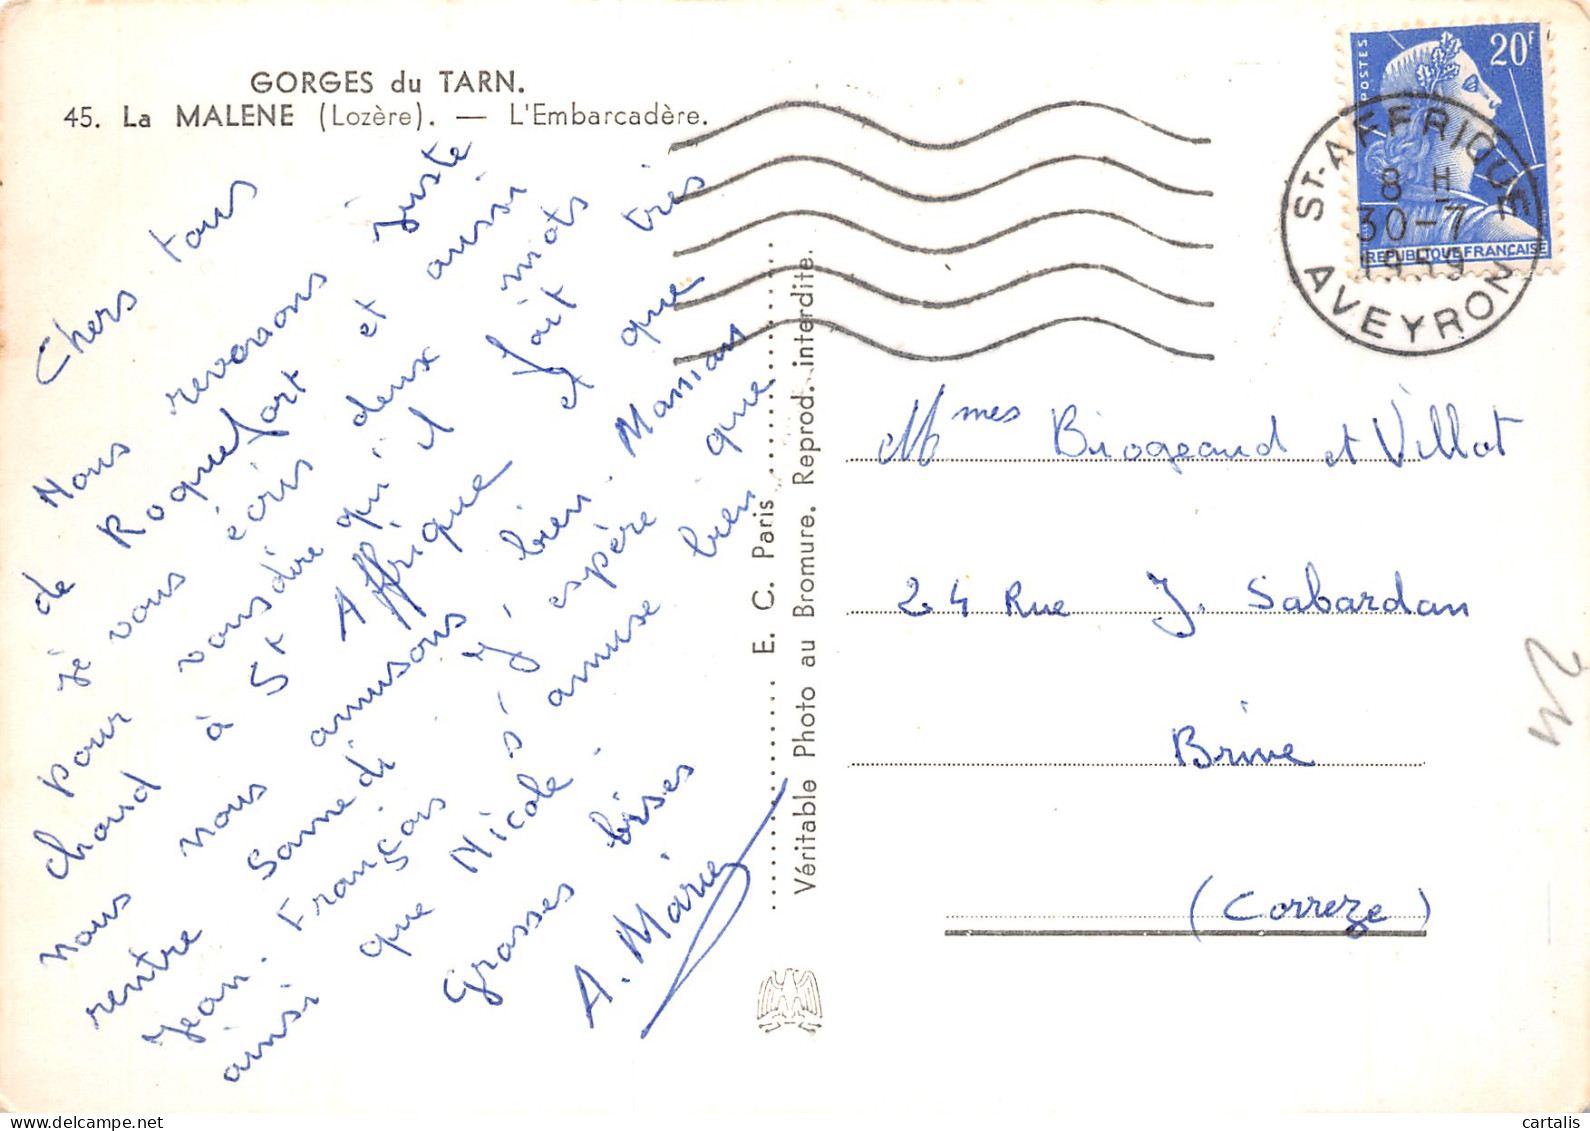 GORGES du TARN.
45. La MALENE (Lozère). — L'Embarcadère.
Chers tous
Nous revenons juste
de Roquefort et aussi
je vous écris deux mots
pour vous dire qu'il fait très
chaud à St Affrique et que
nous nous amusons bien. Maman
rentre Samedi. J'espère que
Jean-François s'amuse bien
ainsi que Nicole.
Grosses bises
A. Marie
E. C. Paris
Véritable Photo au Bromure. Reprod. interdite.
POSTES
20F
REPUBLIQUE FRANÇAISE
ST-AFFRIQUE
8 H
30-7
1959
AVEYRON
Mmes Biogeaud et Villot
24 Rue J. Sabardan
Brive
(Correze)
cartalis